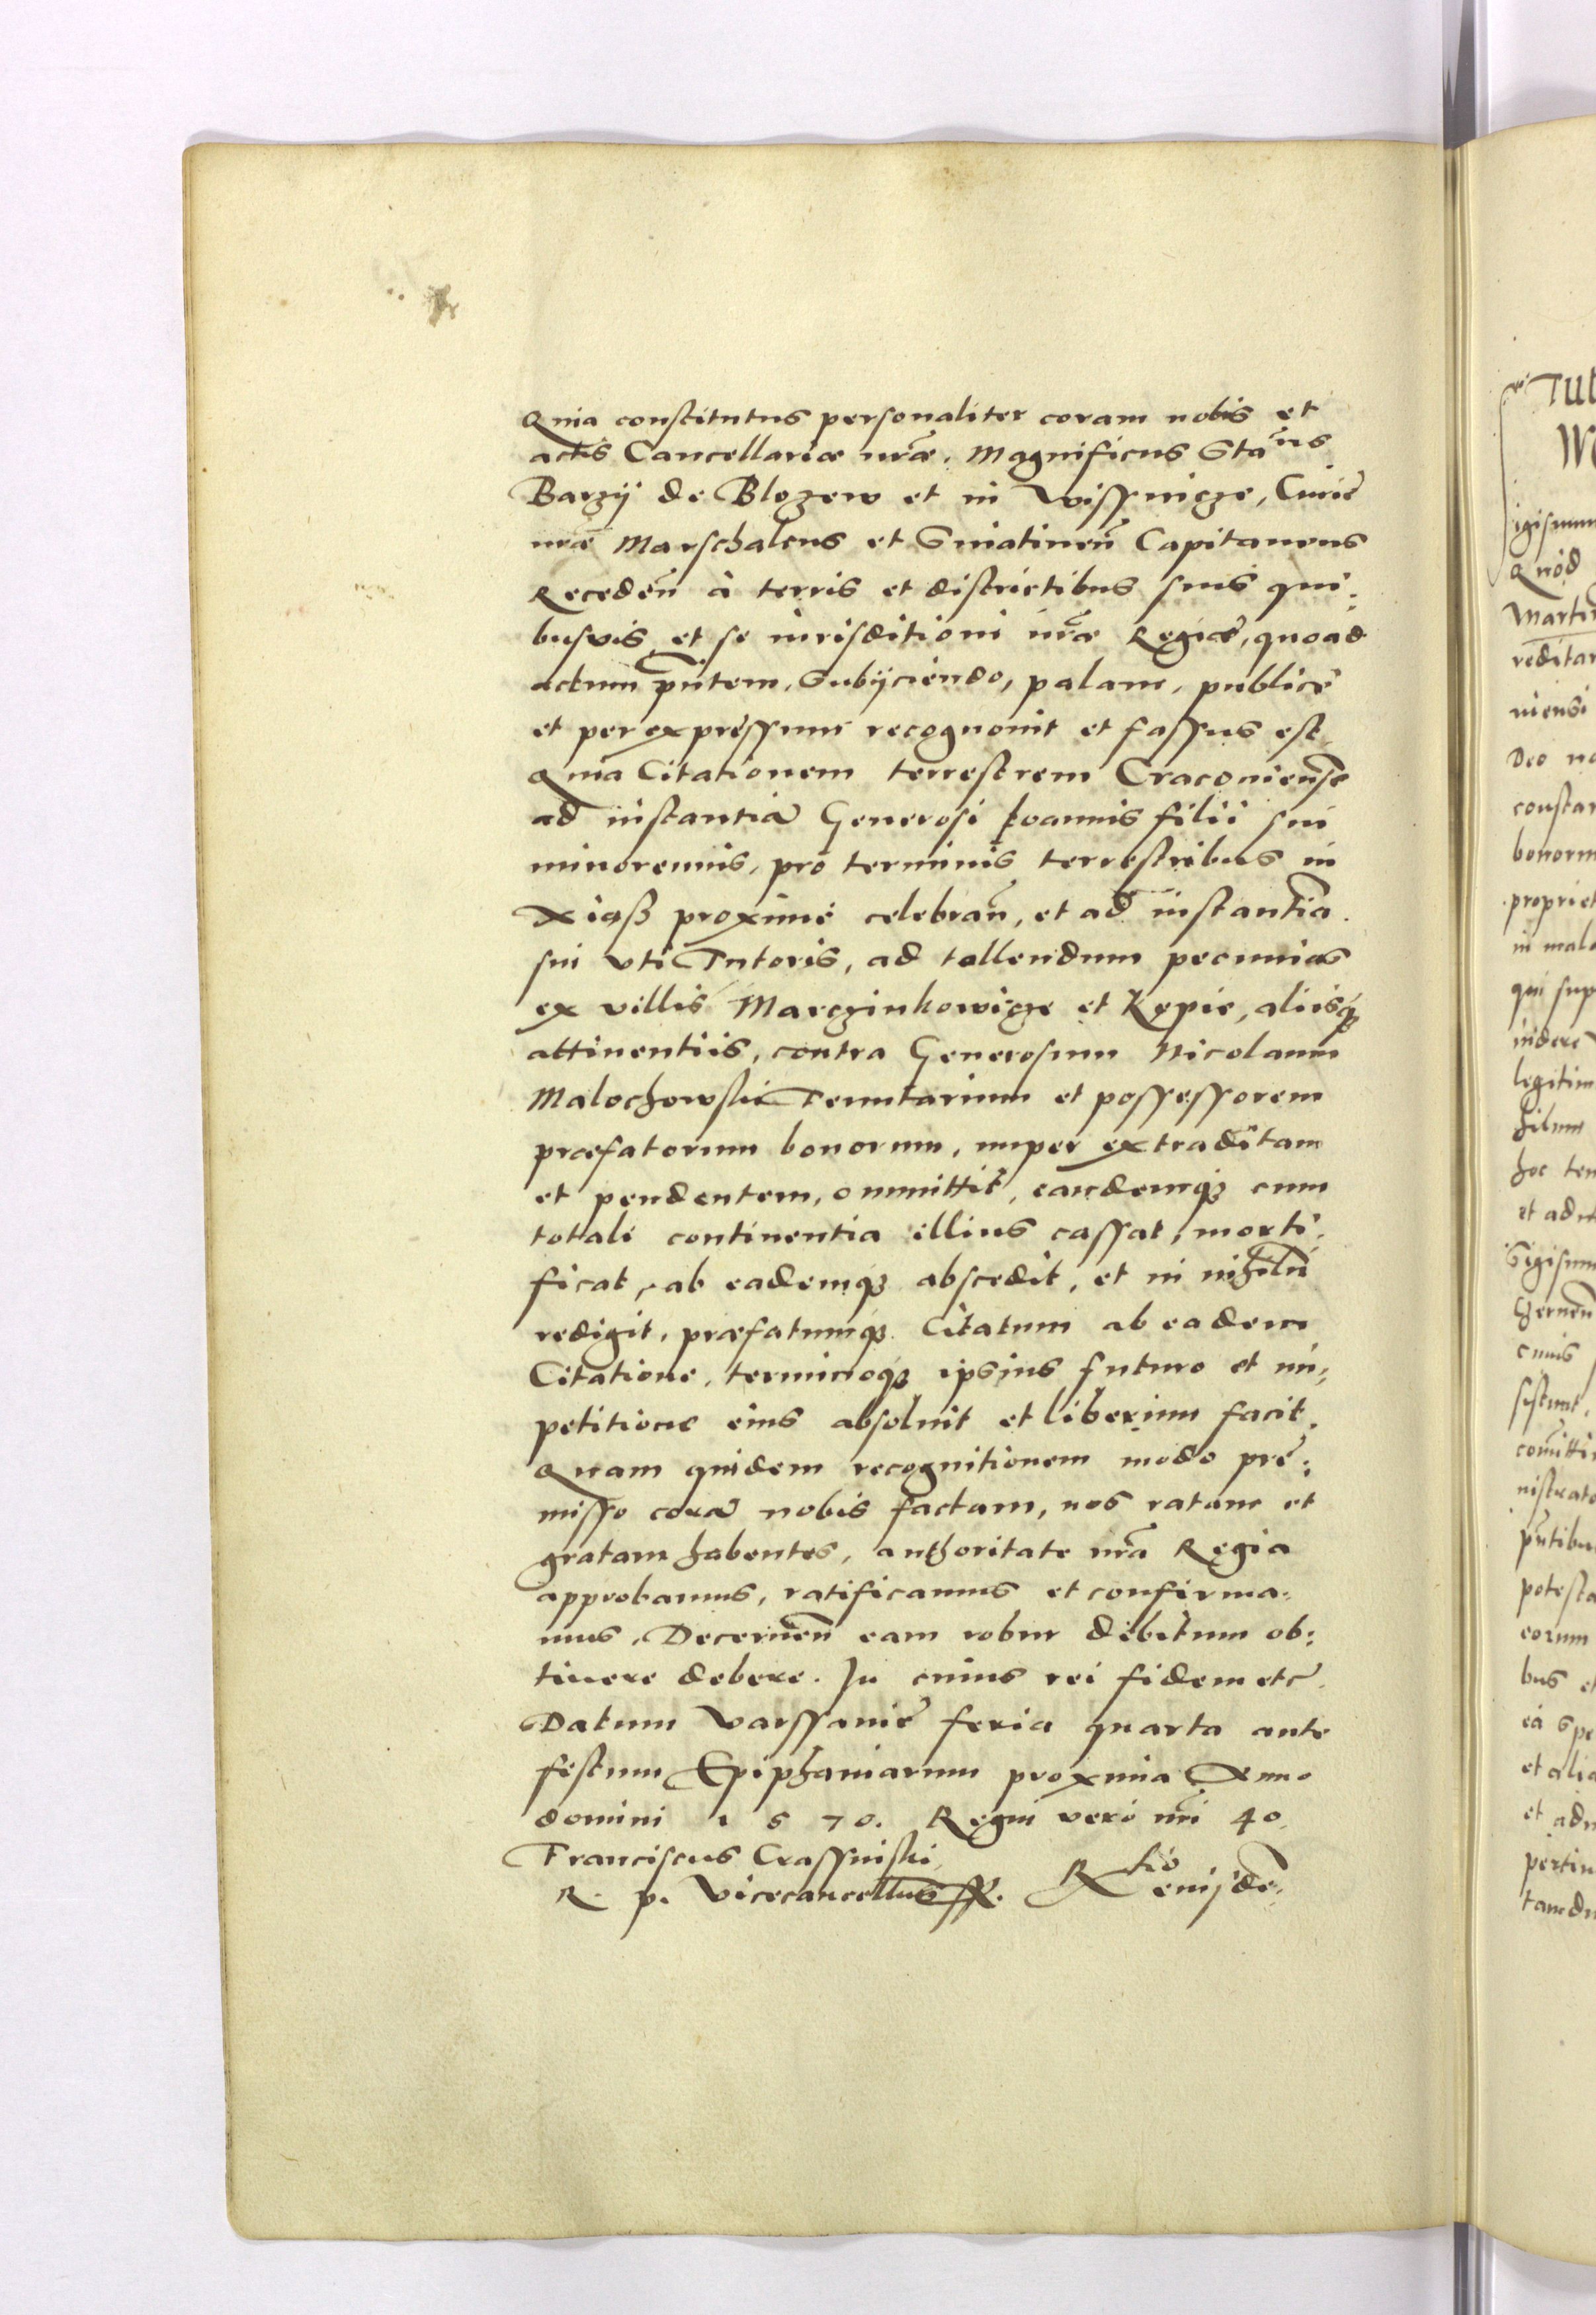 Quia constitutus personaliter coram nobis et
actis Cancellariæ nr̃æ. Magnificus Sta͠us
Barzÿ de Blozew et in Wissnicze, Curię
nr̃æ Marschalcus et Sniatinen̄ Capitaneus
Receden̄ à terris et districtibus suis qui-
busuis, et se iurisditioni nr̃æ Regiæ, quoad
actum pn̄tem, Subijciendo, palam, publicè
et per expressum recognouit et fassus est
Quia Citationem terrestrem Cracouiensē
ad instantiā Generosi Joannis filii sui
minorennis, pro terminis terrestribus in
Xiaß proximè celebran̄, et ad instantiā
sui vti Tutoris, ad tollendum pecunias
ex villis Marczinkowicze et Kępie, aliisqȝ
attinentiis, contra Generosum Nicolaum
Malochowski Tenutarium et possessorem
præfatorum bonorum, nuper extraditam
et pendentem, ommittit, eandemqȝ cum
totali continentia illius cassat, morti-
ficat, ab eademqȝ abscedit, et in nihilū
redigit, præfatumqȝ Citatum ab eadem
Citatione, terminoqȝ ipsius futuro et im-
petitione eius absoluit et liberum facit.
Quam quidem recognitionem modo prę-
misso corā nobis factam, nos ratam et
gratam habentes, authoritate nr̃a Regia
approbamus, ratificamus et confirma-
mus, Decernen̄ eam robur debitum ob-
tinere debere. In cuius rei fidem etc̃.
Datum Varssauię feria quarta ante
festum Epiphaniarum proxima Anno
domini 1570. Regni vero nr̃i 40.
Franciscus Crassinski
R. p. Vicecancellarius sst. R͠tio eiusdē
Tut
igismun
Quòd
Martin
reditar
niensi
Deo no
constan
bonorum
propriet
in mala
qui sup
indere
legitim
filium
hoc ten
et adm
Sigismun
cuius
sistunt,
comitti
nistrato
pn̄tibu
potesta
eorum
bus et
ea spe
et alia
et adm
pertin
tamdi